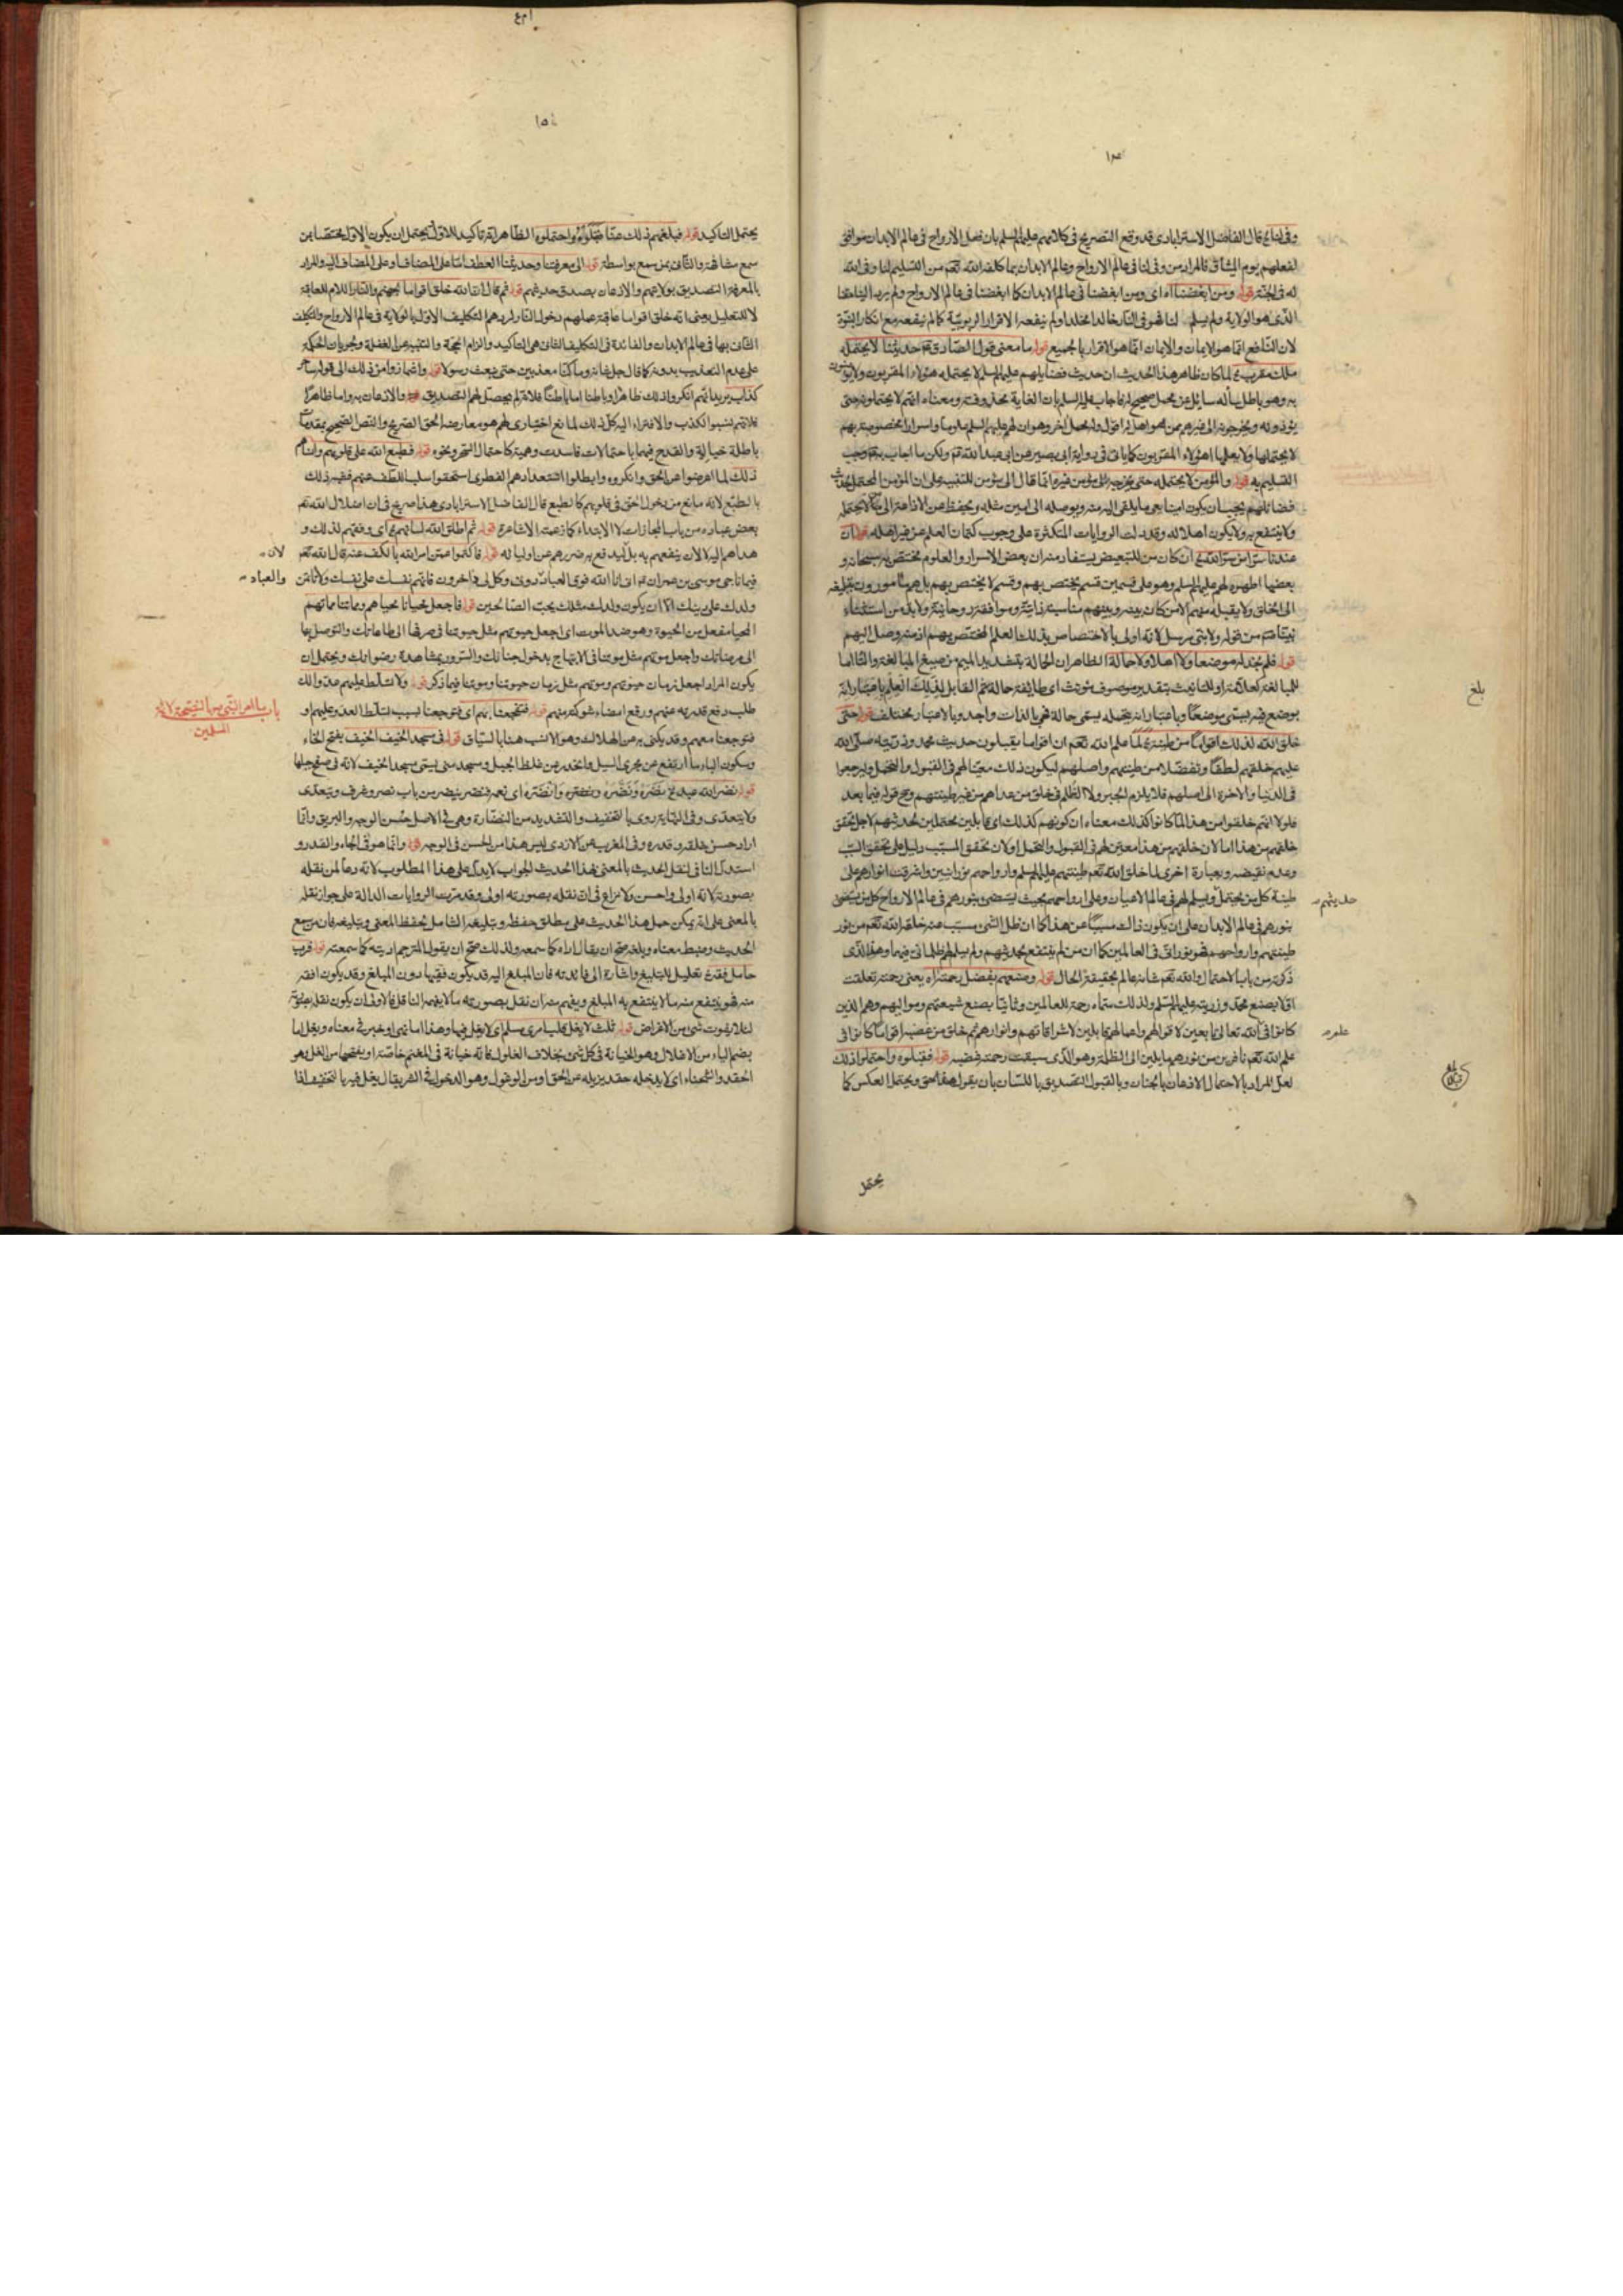 وفى لنا ع قال الفاضل الاسترابادى قد وقع التصريح فى كلامهم عليهم السلم بان فعل الارواح فى عالم الابدان موافق
لفعلهم يوم الميثاق فالمراد من وفى لنا فى عالم الارواح وعالم الابدان بما كلفه الله تعم من التسليم لنا وفى الله
له فى الجنة قوله ومن ابغضنا اه اى ومن ابغضنا فى عالم الابدان كما ابغضنا فى عالم الارواح ولم يرد الينا حقنا
الذى هو الولاية ولم يسلم لنا فهو فى النار خالدا مخلدا ولم ينفعه الاقرار الربوبية كما لم ينفعه مع انكار النبوة
لان النافع انما هو الايمان والايمان انما هو الاقرار بالجميع قوله ما معنى قول الصادق ع حديثنا لا يحتمله
ملك مقرب ع لما كان ظاهر هذا الحديث ان حديث فضايلهم عليهم السلم لا يحتمله هؤلاء المقربون ولا يؤمنون
به وهو باطل سأله سايل عن محمل صحيح له فاجاب عليه السلم بان الغاية محذوفة ومعناه انهم لا يحتملونه حتى
يؤدونه ويخرجونه الى غيرهم ممن هو اهل له اقول وله محمل اخر وهو ان لهم عليهم السلم علوما واسرارا مخصوصة بهم
لا يحتملها ولا يعلمها هؤلاء المقربون كما ياتى فى رواية ابى بصير عن ابى عبد الله ع ولكن ما اجاب به ع وجب
التسليم به قوله والمؤمن لا يحتمله حتى يخرجه الى مؤمن غيره انما قال الى مؤمن للتنبيه على ان المؤمن المحتمل لحديث
فضائلهم يجب ان يكون امينا يعى ما يلقى اليه منه ويوصله الى امين مثله ويحفظ عن الاذاعة الى من لا يحتمله
ولا ينتفع به ولا يكون اهلا له وقد دلت الروايات المتكثرة على وجوب كتمان العلم عن غير اهله قوله ان
عندنا سرا من سر الله ع ان كان من للتبعيض يستفاد منه ان بعض الاسرار والعلوم مختص به سبحانه و
بعضها اظهره لهم عليهم السلم وهو على قسمين قسم يختص بهم وقسم لا يختص بهم بل هم مأمورون بتبليغه
الى الخلق ولا يقبله منهم الا من كان بينه وبينهم مناسبة ذاتية وموافقة روحانية ولا بد من استثناء
نبينا ص من قوله ولا نبى مرسل لانه اولى بالاختصاص بذلك العلم المختص بهم اذ منه وصل اليهم
قوله فلم نجد له موضعا ولا اهلا ولا حمالة الظاهر ان الحمالة بتشديد الميم من صيغ المبالغة والتاء اما
للمبالغة كعلامة او للتانيث بتقدير موصوف مؤنث اى طايفة حمالة ثم القابل لذلك العلم باعتبار انه
يوضع فيه يسمى موضعا وباعتبار انه يحمله يسمى حمالة فهى بالذات واحد وبالاعتبار مختلف قوله حتى
خلق الله لذلك اقواما من طينة ع لما علم الله تعم ان اقواما يقبلون حديث محمد وذريته صلى الله
عليهم خلقهم لطفا وتفضلا من طينتهم واصلهم ليكون ذلك معينا لهم فى القبول والتحمل وليرجعوا
فى الدنيا والاخرة الى اصلهم فلا يلزم الجبر ولا الظلم فى خلق من عداهم من غير طينتهم وح قوله فيما بعد
فلولا انهم خلقوا من هذا لما كانوا كذلك معناه ان كونهم كذلك اى قابلين محتملين لحديثهم لاجل تحقق
خلقهم من هذا اما لان خلقهم من هذا معين لهم فى القبول والتحمل او لان تحقق المسبب دليل على تحقق السبب
وعدم نقيضه وبعبارة اخرى لما خلق الله تعم طينتهم عليهم السلم وارواحهم نورانيين واشرقت انوارهم على
طينة كل من يحتمل ويسلم لهم فى عالم الاعيان وعلى ارواحهم بحيث يستضئ بنورهم فى عالم الارواح كل من يستضئ
حديثهم
بنورهم فى عالم الابدان على ان يكون ذلك مسببا عن هذا كما ان ظل الشئ مسبب عنه خلقه الله تعم من نور
طينتهم وارواحهم فهو نورانى فى العالمين كما ان من لم ينتفع بحديثهم ولم يسلم لهم ظلمانى فيهما وهذا الذى
ذكرته من باب الاحتمال والله تعم شانه عالم بحقيقة الحال قوله وصنعهم بفضل رحمته اه يعنى رحمته تعلقت
اولا بصنع محمد وذريته عليهم السلم ولذلك سماه رحمة للعالمين وثانيا بصنع شيعتهم ومواليهم وهم الذين
كانوا فى الله تعالى تابعين لاقوالهم واعمالهم قابلين لاشراقاتهم وانوارهم ثم خلق من غضبه اقواما كانوا فى
علم الله تعم نافرين من نورهم مايلين الى الظلمة وهو الذى سبقت رحمته غضبه قوله فقبلوه واحتملوا ذلك
لعل المراد بالاحتمال الاذعان بالجنان وبالقبول التصديق باللسان بان يقول هذا حق ويحتمل العكس كما
بلغ
يحتمل
يحتمل التاكيد قوله فبلغهم ذلك عنا فقبلوه واحتملوه الظاهر انه تاكيد للاول ويحتمل ان يكون الاول مختصا بمن
سمع مشافهة والثانى بمن سمع بواسطة قوله الى معرفتنا وحديثنا العطف اما على المضاف او على المضاف اليه والمراد
بالمعرفة التصديق بولايتهم والاذعان بصدق حديثهم قوله ثم قال ان الله خلق اقواما لجهنم والنار اللام للعاقبة
لا للتعليل يعنى انه خلق اقواما عاقبة عملهم دخول النار لردهم التكليف الاول بالولاية فى عالم الارواح والتكليف
الثانى بها فى عالم الابدان والفائدة فى التكليف الثانى هى التاكيد والزام الحجة والتنبيه عن الغفلة وجريان الحكمة
على عدم التعذيب بدونه كما قال جل شانه وما كنا معذبين حتى نبعث رسولا قوله واشمازوا من ذلك الى قوله ساحر
كذاب يريد انهم انكروا ذلك ظاهرا وباطنا اما باطنا فلانه لم يحصل لهم التصديق والاذعان به واما ظاهرا
فلانهم نسبوا الكذب والافتراء اليه كل ذلك لمانع اختيارى لهم هو معارضة الحق الصريح والنص الصحيح بمقدمات
باطلة خيالية والقدح فيهما باحتمالات فاسدة وهمية كاحتمال السحر ونحوه قوله فطبع الله على قلوبهم وانساهم
ذلك لما اعرضوا عن الحق وانكروه وابطلوا استعدادهم الفطرى استحقوا سلب اللطف عنهم فشبه ذلك
بالطبع لانه مانع من دخول الحق فى قلوبهم كالطبع قال الفاضل الاسترابادى هذا صريح فى ان اضلال الله تعم
بعض عباده من باب المجازات لا الابتداء كما زعمته الاشاعرة قوله ثم اطلق الله لسانهم ع اى وفقهم لذلك و
هداهم اليه لا لان ينفعهم به بل ليدفع به ضررهم عن اوليائه قوله فاكتموا عمن امر الله بالكف عنه قال الله تعم
لان
فيما ناجى موسى بن عمران ع انا الله فوق العباد دونى وكل لى داخرون فاتهم نفسك على نفسك ولا تاتمن
والعباد
ولدك على دينك الا ان يكون ولدك مثلك يحب الصالحين قوله فاجعل محيانا محياهم ومماتنا مماتهم
المحيا مفعل من الحيوة وهو ضد الموت اى اجعل حيوتهم مثل حيوتنا فى صرفها الى طاعاتك والتوصل بها
الى مرضاتك واجعل موتهم مثل موتنا فى الابتهاج بدخول جنانك والسرور بمشاهدة رضوانك ويحتمل ان
يكون المراد اجعل زمان حيوتهم وموتهم مثل زمان حيوتنا وموتنا فيما ذكر قوله ولا تسلط عليهم عدوا لك
طلب دفع قدرته عنهم ورفع امضاء شوكته منهم قوله فتفجعنا بهم اى فتوجعنا بسبب تسلط العدو عليهم او
باب ما امر النبى ص بالنصيحة لائمة
المسلمين
فتوجعنا معهم وقد يكنى به عن الهلاك وهو الانسب هنا بالسياق قوله فى مسجد الخيف الخيف بفتح الخاء
وسكون الياء ما ارتفع عن مجرى السيل وانحدر عن غلظ الجبل ومسجد منى يسمى مسجد الخيف لانه فى سفح جبلها
قوله نضر الله عبدا ع نضره ونضّره ونضره وانضره اى نعمه فنضر ينضر من باب نصر وشرف ويتعدى
ولا يتعدى وفى النهاية يروى بالتخفيف والتشديد من النضارة وهى فى الاصل حسن الوجه والبريق وانما
اراد حسن خلقه وقدره وفى المغرب عن الازدى ليس هذا من الحسن فى الوجه قوله وانما هو فى الجاه والقدر و
استدل النافى لنقل الحديث بالمعنى بهذا الحديث الجواب لا يدل على هذا المطلوب لانه دعا لمن نقله
بصورته لانه اولى واحسن ولا نزاع فى ان نقله بصورته اولى وقد مرت الروايات الدالة على جواز نقله
بالمعنى على انه يمكن حمل هذا الحديث على مطلق حفظه وتبليغه الشامل لحفظ المعنى وتبليغه فان من سمع
الحديث وضبط معناه وبلغه صح ان يقال اداه كما سمعه ولذلك صح ان يقول المترجم اديته كما سمعته قوله فرب
حامل فقه ع تعليل للتبليغ واشارة الى فائدته فان المبلغ اليه قد يكون فقيها دون المبلغ وقد يكون افقه
منه فهو ينتفع منه ما لا ينتفع به المبلغ ويفهم منه ان نقل بصورته ما لا يفهمه الناقل فالاولى ان يكون نقله بعينه
لئلا يفوت شئ من الاغراض قوله ثلث لا يغل عليها قلب امرئ مسلم اى لا يغل فيها وهذا اما نهى او خبر فى معناه ويغل اما
بضم الياء من الاغلال وهو الخيانة فى كل شئ بخلاف الغلول فانه خيانة فى المغنم خاصة او بفتحها من الغل وهو
الحقد والشحناء اى لا يدخله حقد يزيله عن الحق او من الوغول وهو الدخول فى الشر يقال يغل فيه بالتخفيف اذا